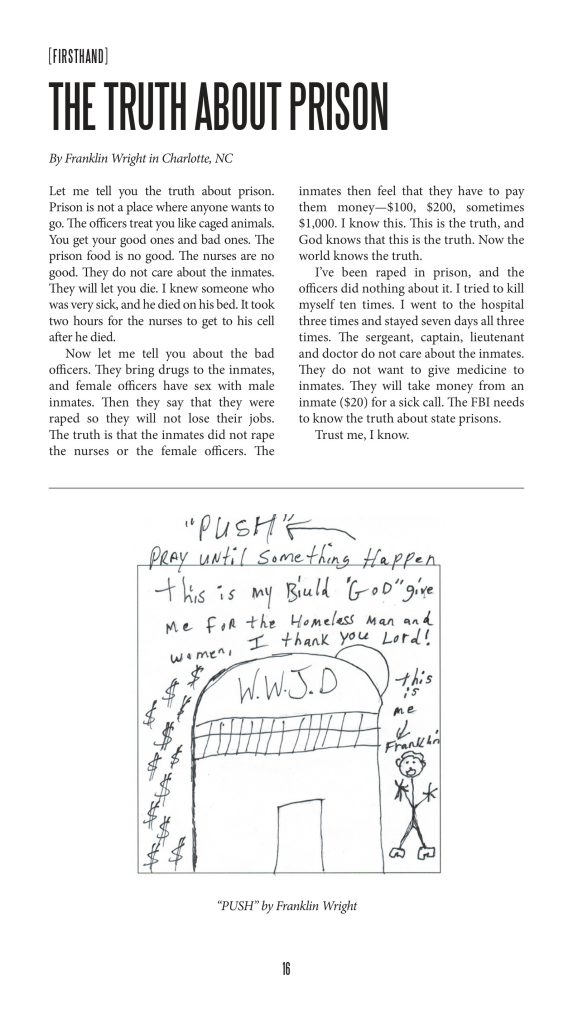 [FIRSTHAND]
THE TRUTH ABOUT PRISON
By Franklin Wright in Charlotte, NC
Let me tell you the truth about prison.
Prison is not a place where anyone wants to
go. The officers treat you like caged animals.
You get your good ones and bad ones. The
prison food is no good. The nurses are no
good. They do not care about the inmates.
They will let you die. I knew someone who
was very sick, and he died on his bed. It took
two hours for the nurses to get to his cell
after he died.
Now let me tell you about the bad
officers. They bring drugs to the inmates,
and female officers have sex with male
inmates. Then they say that they were
raped so they will not lose their jobs.
The truth is that the inmates did not rape
the nurses or the female officers. The
inmates then feel that they have to pay
them money—$100, $200, sometimes
$1,000. I know this. This is the truth, and
God knows that this is the truth. Now the
world knows the truth.
I've been raped in prison, and the
officers did nothing about it. I tried to kill
myself ten times. I went to the hospital
three times and stayed seven days all three
times. The sergeant, captain, lieutenant
and doctor do not care about the inmates.
They do not want to give medicine to
inmates. They will take money from an
inmate ($20) for a sick call. The FBI needs
to know the truth about state prisons.
Trust me, I know.
"PUSH"
PRAY UNtil Something Happen
this is my Biuld "GOD" give
me FOR the Homeless Man and
women, I thank you Lord!
W.W.J.D
this
is
me
Franklin
$
$
$
$
$
$
$
$
$
$
$
$
$
"PUSH" by Franklin Wright
16